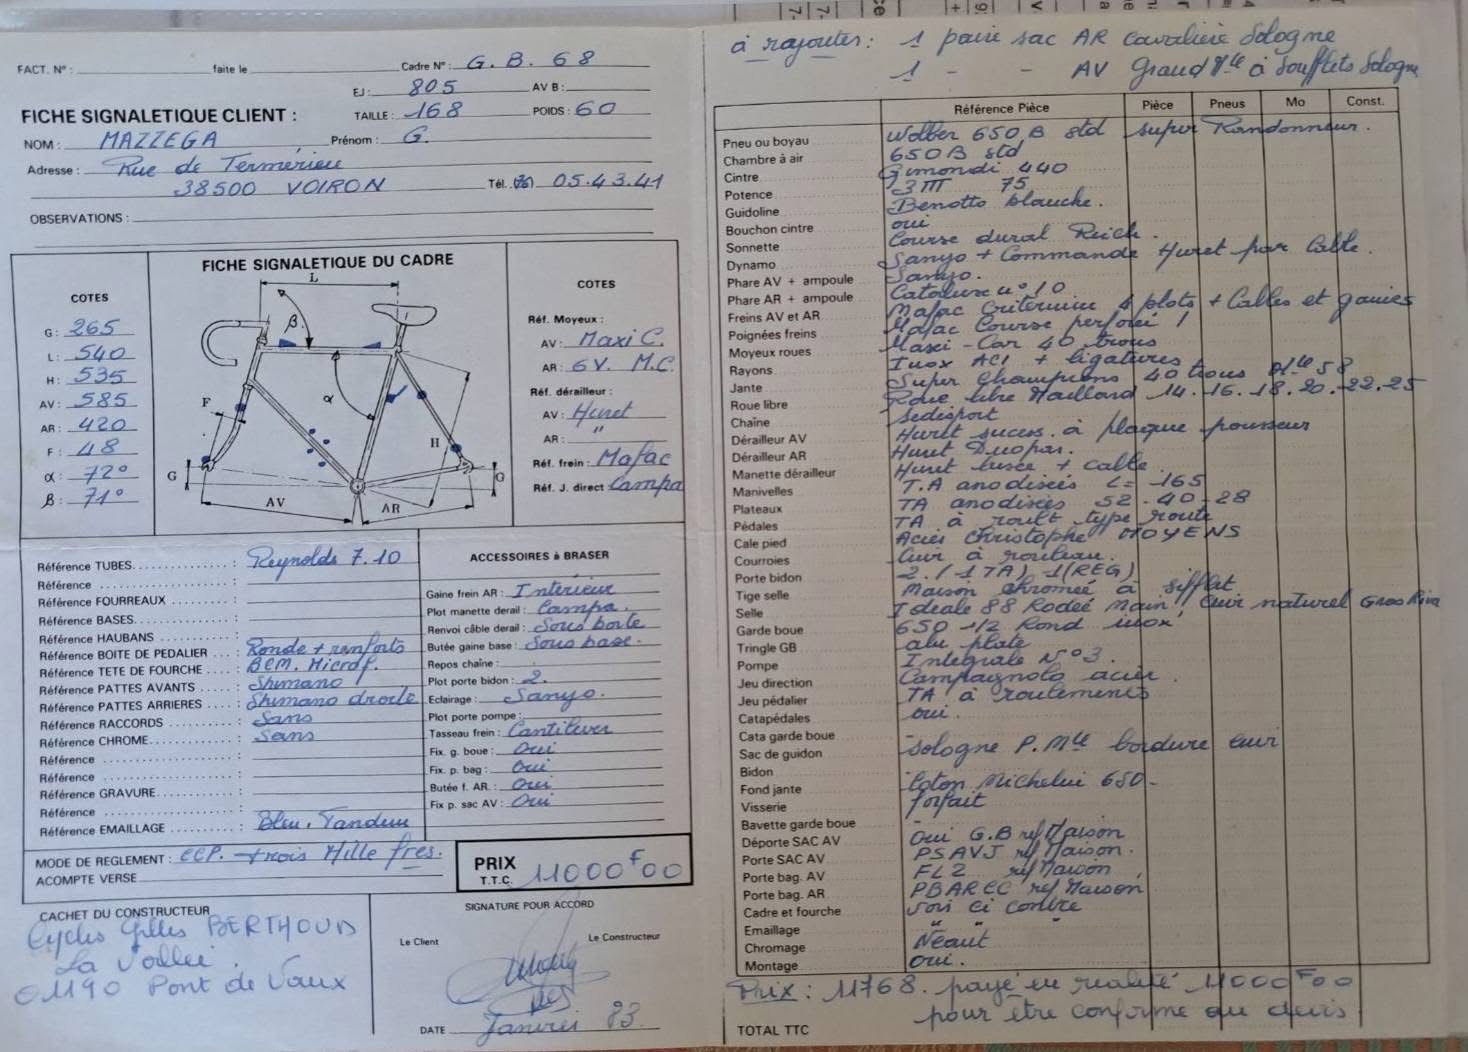 FACT. N° : faite le Cadre N° : G. B. 68
EJ : 805 AV B :
FICHE SIGNALETIQUE CLIENT : TAILLE : 168 POIDS : 60
NOM : MAZZEGA Prénom : G.
Adresse : Rue de Termerieu
38500 VOIRON Tél. (76) 05.43.41
OBSERVATIONS :
FICHE SIGNALETIQUE DU CADRE
COTES
G : 265
L : 540
H : 535
AV : 585
AR : 420
F : 48
α : 72°
β : 71°
L
β
α
F
H
G
G
AV
AR
COTES
Réf. Moyeux :
AV : Maxi C.
AR : 6V. M.C.
Réf. dérailleur :
AV : Huret
AR : "
Réf. frein : Mafac
Réf. J. direct : Campa
Référence TUBES : Reynolds 7.10
Référence :
Référence FOURREAUX :
Référence BASES :
Référence HAUBANS :
Référence BOITE DE PEDALIER : Ronde + renforts
Référence TETE DE FOURCHE : BCM. Microf.
Référence PATTES AVANTS : Shimano
Référence PATTES ARRIERES : Shimano droite
Référence RACCORDS : Sans
Référence CHROME : Sans
Référence :
Référence :
Référence GRAVURE :
Référence :
Référence EMAILLAGE : Bleu. Tandem
ACCESSOIRES à BRASER
Gaine frein AR : Intérieur
Plot manette derail : Campa.
Renvoi câble derail : Sous boite
Butée gaine base : Sous base.
Repos chaîne :
Plot porte bidon : 2.
Eclairage : Sanyo.
Plot porte pompe :
Tasseau frein : Cantilever
Fix. g. boue : Oui
Fix. p. bag : Oui
Butée f. AR. : Oui
Fix p. sac AV : Oui
MODE DE REGLEMENT : CCP. trois Mille frcs.
ACOMPTE VERSE
PRIX
T.T.C. 11000F00
CACHET DU CONSTRUCTEUR
Cycles Gilles BERTHOUD
La Vallée.
01190 Pont de Vaux
SIGNATURE POUR ACCORD
Le Client Le Constructeur
DATE Janvier 83.
à rajouter : 1 paire sac AR cavalière Sologne
1 - - AV Grand Mle à Soufflets Sologne
Référence Pièce Pièce Pneus Mo Const.
Pneu ou boyau Wolber 650 B std super Randonneur.
Chambre à air 650B std
Cintre Gimondi 440
Potence 3TTT 75
Guidoline Benotto blanche.
Bouchon cintre oui
Sonnette Course dural Reich.
Dynamo Sanyo + Commande Huret par Cable.
Phare AV + ampoule Sanyo.
Phare AR + ampoule Catalure n° 10
Freins AV et AR Mafac Criterium 4 plots + Cables et gaines
Poignées freins Mafac Course perforé !
Moyeux roues Maxi-Car 40 trous
Rayons Inox ACI + ligatures
Jante Super Champions 40 trous Mle 58
Roue libre Roue libre Maillard 14.16.18.20.22.25
Chaîne Sedisport
Dérailleur AV Huret success. à plaque pousseur
Dérailleur AR Huret Duopar.
Manette dérailleur Huret + cable.
Manivelles T.A anodisées L= 165
Plateaux TA anodisés 52-40-28
Pédales TA à roult type route
Cale pied Acier Christophe MOYENS
Courroies Cuir à rouleau.
Porte bidon 2. (1 TA) 1(REG)
Tige selle Maison chromée à sifflet
Selle Ideale 88 Rodée Main Cuir naturel Gros Rivs
Garde boue 650 1/2 Rond inox
Tringle GB alu plate
Pompe Intégrale N°3.
Jeu direction Campagnolo acier.
Jeu pédalier TA à roulements
Catapédales oui.
Cata garde boue -
Sac de guidon Sologne P. Mle bordure cuir
Bidon -
Fond jante Coton Michelin 650-
Visserie forfait
Bavette garde boue
Déporte SAC AV Oui G.B ref Maison
Porte SAC AV PSAVJ ref Maison.
Porte bag. AV FL2 ref Maison
Porte bag. AR PBARCC ref Maison
Cadre et fourche voir ci contre
Emaillage " " "
Chromage Néant
Montage oui.
Prix : 11768. payé en realité 11000F00
pour être conforme au devis
TOTAL TTC